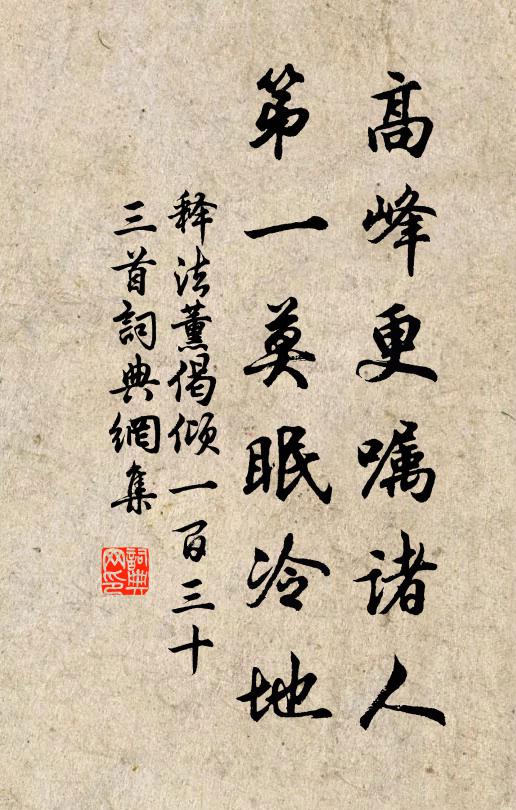 高峰更嘱诸人
第一莫眠冷地
释法薰偈倾一百三十
三首詞典網集
詞典
网印